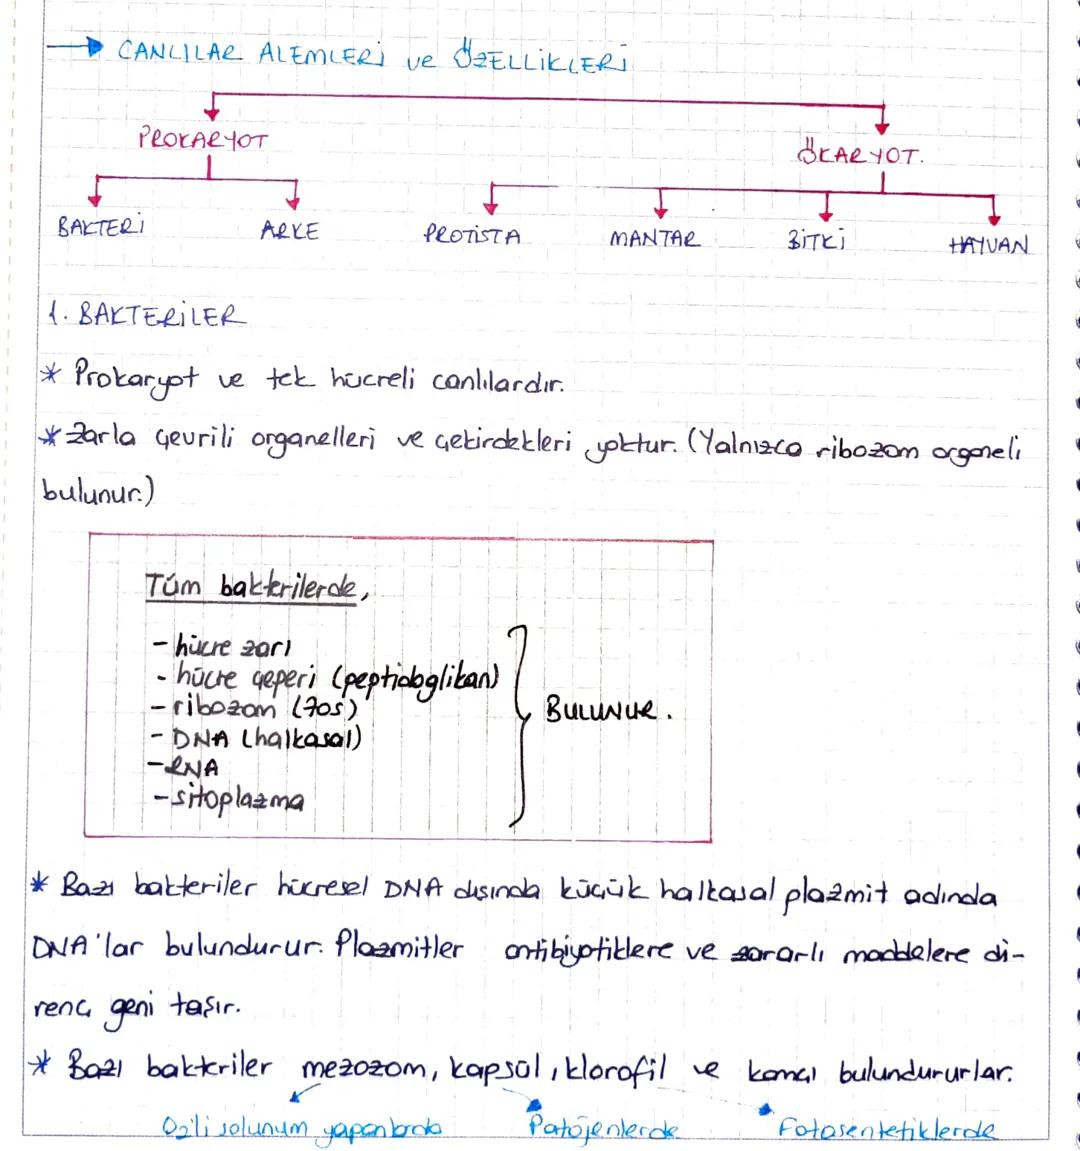 CANLILAR ALEMLERİ ve ÖZELLİKLERİ
PROKARYOT
ÖKARYOT.
BAKTERİ ARKE PROTİSTA MANTAR BİTKİ HAYVAN
1. BAKTERİLER
* Prokaryot ve tek hücreli canlılardır.
* Zarla çevrili organelleri ve çekirdekleri yoktur. (Yalnızca ribozom organeli
bulunur.)
Tüm bakterilerde,
- hücre zarı
- hücre çeperi (peptidoglikan)
- ribozom (70s)
- DNA (halkasal)
- RNA
- sitoplazma
BULUNUR.
* Bazı bakteriler hücresel DNA dışında küçük halkasal plazmit adında
DNA'lar bulundurur. Plazmitler antibiyotiklere ve zararlı maddelere di-
renç geni taşır.
* Bazı bakteriler mezozom, kapsül, klorofil ve kamçı bulundururlar.
O₂'li solunum yapanlarda Patojenlerde Fotosentetiklerde